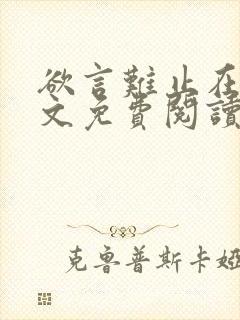 欲言難止在
文免費閱讀
克魯普斯卡婭